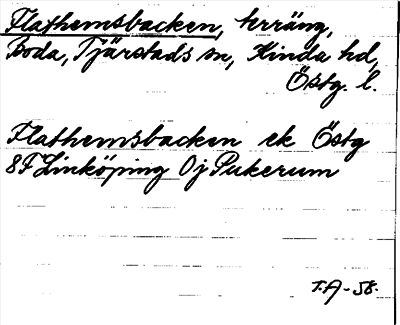 Flathemsbacken, terräng,
Boda, Tjärstads sn, Kinda hd,
Östg. l.
Flathemsbacken ek Östg
8F Linköping 0j Pukerum
T.A-58.